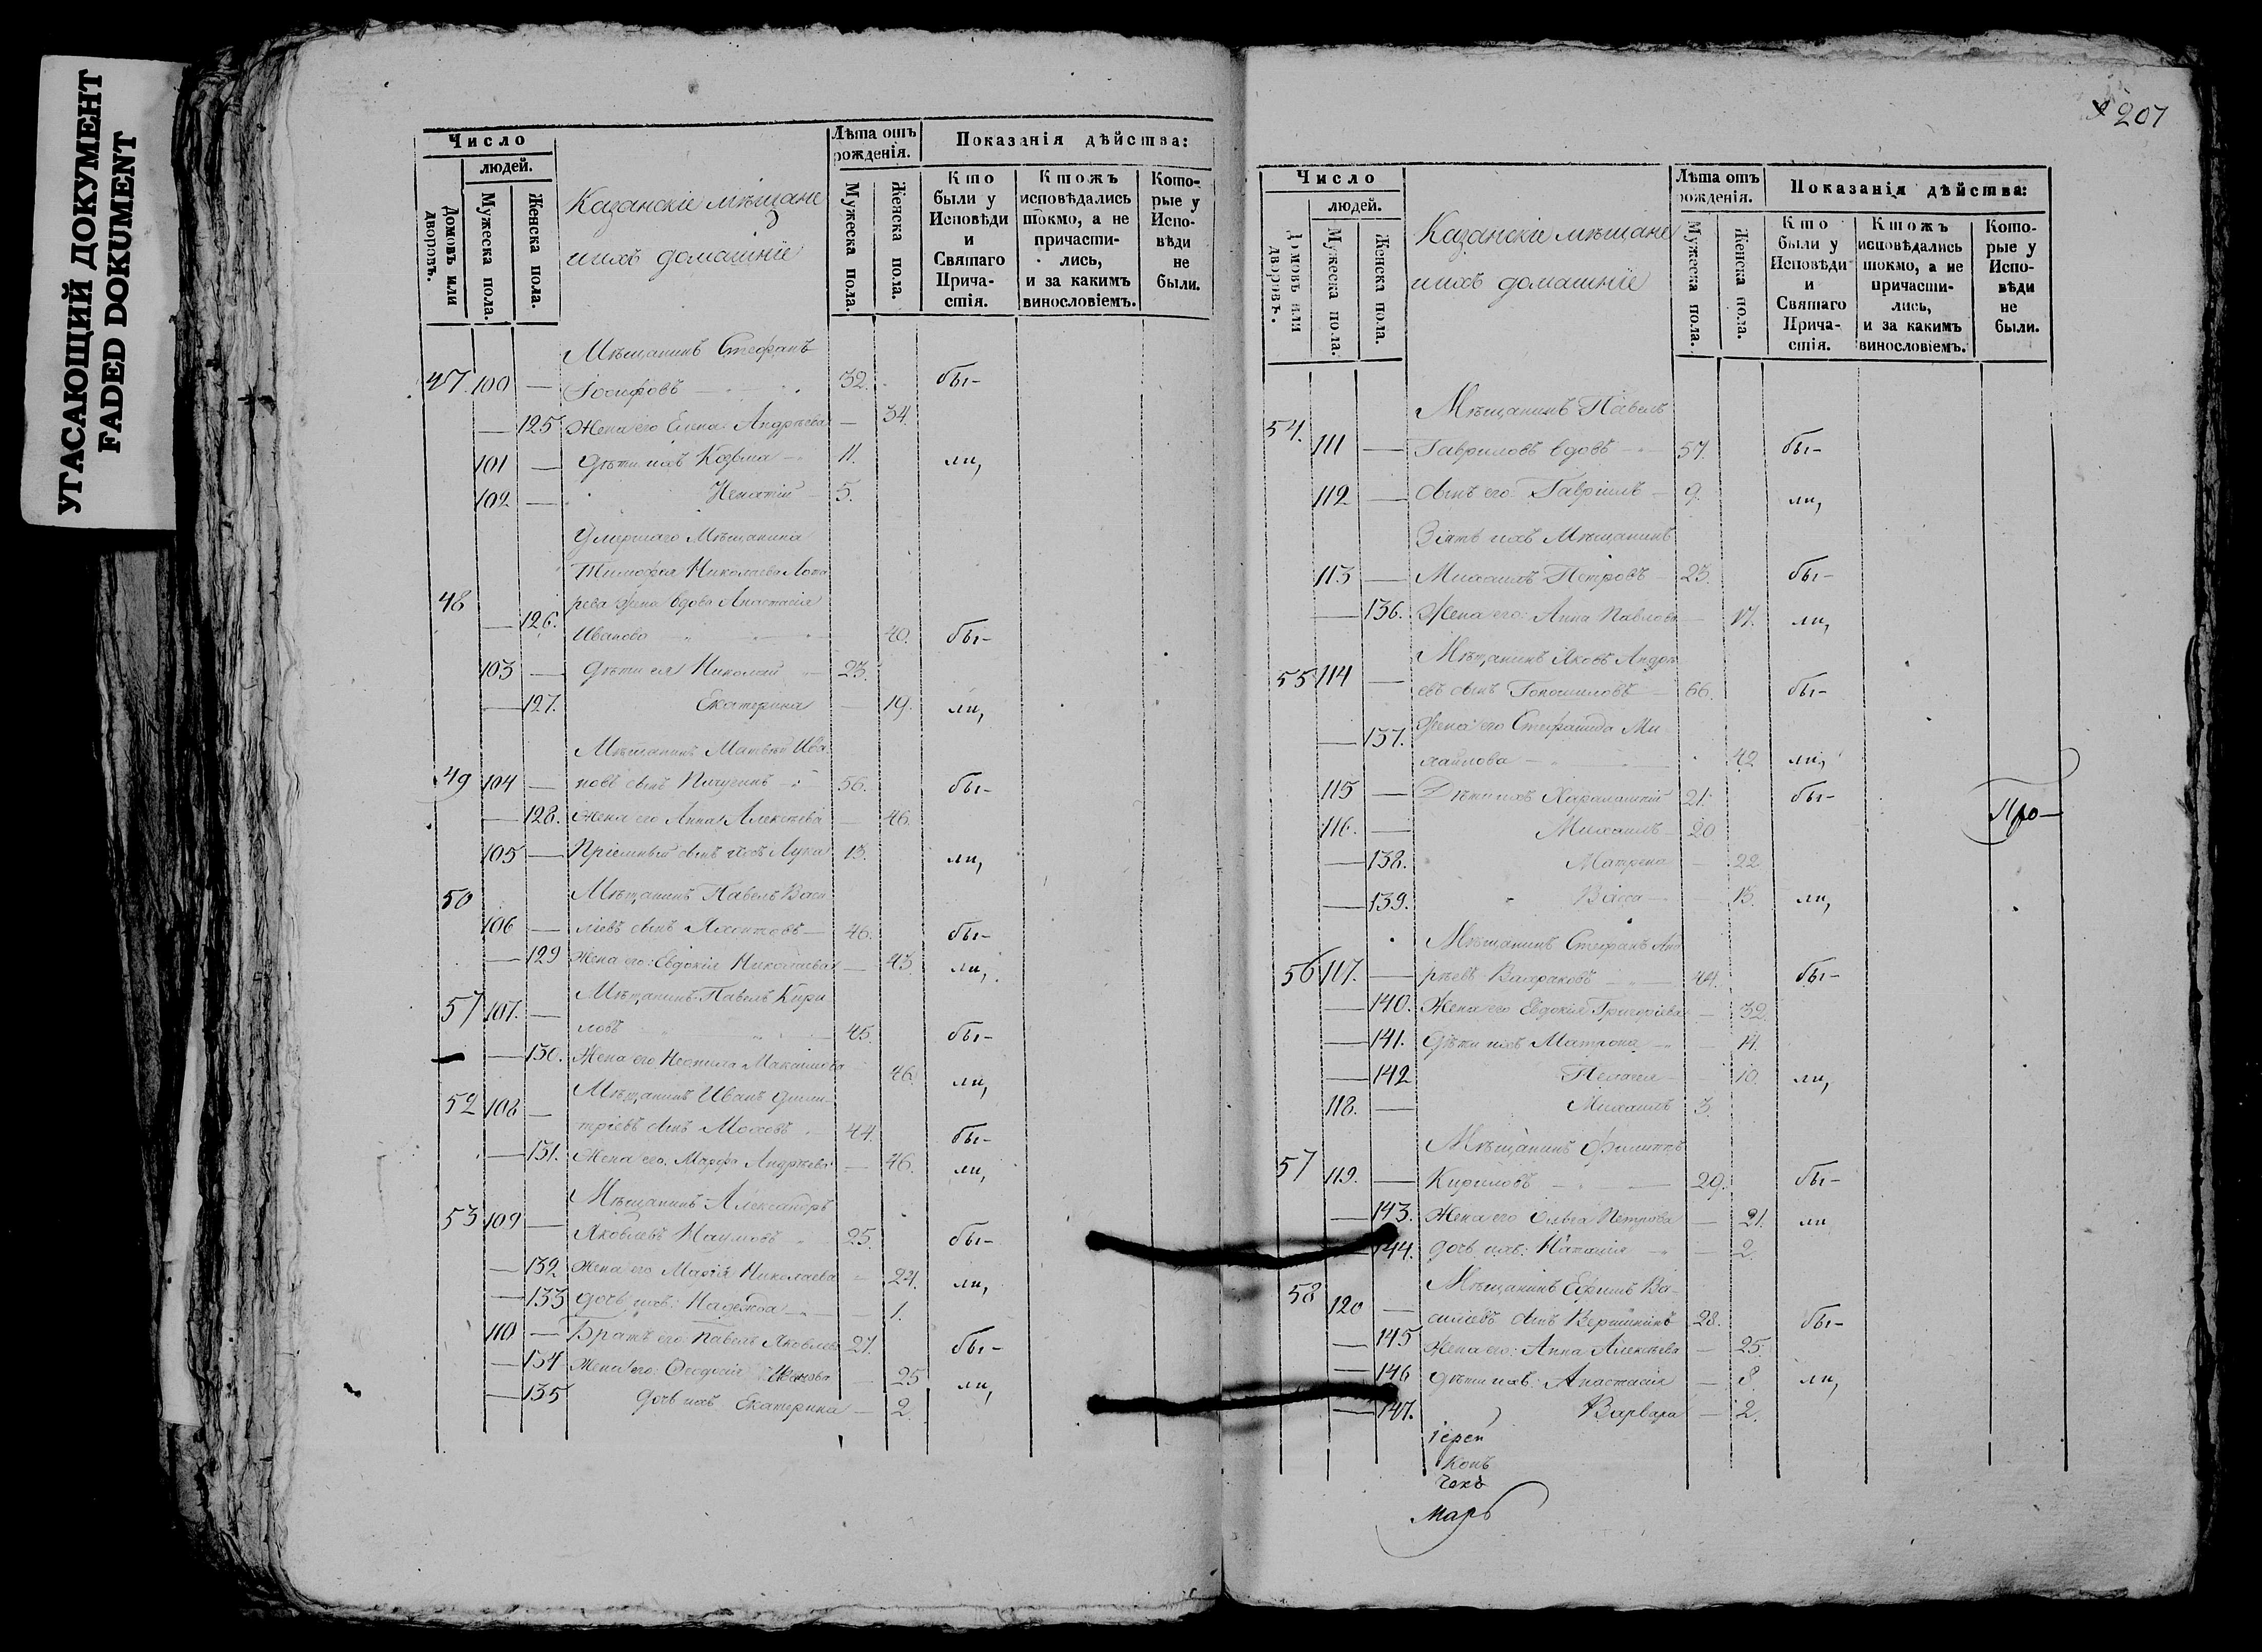 УГАСАЮЩИЙ ДОКУМЕНТ
FADED DOKUMENT
Число
людей.
Домовъ или дворовъ.
Мужеска пола.
Женска пола.
Казанскіе мѣщане
и ихъ домашніе
Лѣта отъ рожденія.
Мужеска пола.
Женска пола.
Показанія дѣйства:
Кто были у Исповѣди и Святаго Прича-стія.
Ктожъ исповѣдались токмо, а не причасти-лись, и за какимъ винословіемъ.
Кото-рые у Испо-вѣди не были.
Мѣщанинъ Стефанъ
47. 100 — Іосифовъ 32. бы-
— 125 Жена его Елена Андреева — 34.
101 — Дѣти ихъ Козьма 11. ли,
102 — Игнатій 5.
Умершаго Мѣщанина
Тимофея Николаева
48 рева жена вдова Анастасія
— 126. Иванова 40. бы-
103 — Дѣти ея Николай 23.
— 127. Екатерина — 19. ли,
Мѣщанинъ Матвей Ива
49 104 — новъ сынъ Пичугинъ 56. бы-
— 128. Жена его Анна Алексѣева — 46.
105 — Пріемный сынъ ихъ Лука 13. ли,
50 Мѣщанинъ Павелъ Васи
106 — ліевъ сынъ 46. бы-
— 129 Жена его: Евдокія Николаева — 43 ли,
57 107. — Мѣщанинъ Павелъ Кири
ловъ 45. бы-
— 130. Жена его Неонила Максимова 46. ли,
52 108 — Мѣщанинъ Иванъ Дими-
тріевъ сынъ Моховъ 44. бы-
— 131. Жена его. Марфа Андреева — 46. ли,
Мѣщанинъ Александръ
53 109 — Яковлевъ Наумовъ 25. бы-
— 132 Жена его Марія Николаева 24. ли,
— 133 дочь ихъ: Надежда — 1.
110 — Братъ его: Павелъ Яковлевъ 27. бы-
— 134 Жена его: Ѳеодосія Иванова — 25 ли,
— 135 дочь ихъ Екатерина — 2.
207
Число
людей.
Домовъ или дворовъ.
Мужеска пола.
Женска пола.
Казанскіе мѣщане
и ихъ домашніе
Лѣта отъ рожденія.
Мужеска пола.
Женска пола.
Показанія дѣйства:
Кто были у Исповѣди и Святаго Прича-стія.
Ктожъ исповѣдались токмо, а не причасти-лись, и за какимъ винословіемъ.
Кото-рые у Испо-вѣди не были.
54. Мѣщанинъ Павелъ
111 — Гавриловъ вдовъ 57. бы-
112 — Сынъ его Гавріилъ 9. ли,
Зять ихъ Мѣщанинъ
113 — Михаилъ Петровъ 23. бы-
— 136. Жена его: Анна Павлова — 17. ли,
Мѣщанинъ Яковъ Андре
55 114 — евъ сынъ 66. бы-
— 137. Жена его Стефанида Ми
хайлова 42 ли,
115 — Дѣти ихъ Харалампій 21. бы-
Про-
116. — Михаилъ 20
— 138. Матрена — 22
— 139. Васса — 13. ли,
Мѣщанинъ Стефанъ Анд
56 117. — реевъ 44. бы-
— 140. Жена его Евдокія Григорьева — 32.
— 141. Дѣти ихъ Матрона — 14.
— 142 Пелагея — 10. ли,
118. — Михаилъ 3.
57 Мѣщанинъ Филиппъ
119. — Кириловъ 29. бы-
— 143. Жена его Ольга Петрова — 21. ли
— 144. дочь ихъ: Наталія — 2.
58 Мѣщанинъ Ефимъ Ва-
120 — силіевъ сынъ Вершининъ 28. бы-
— 145 Жена его: Анна Алексѣева — 25.
— 146 дѣти ихъ: Анастасія — 8. ли,
— 147. Варвара — 2.
Іерей
Конъ
Чекъ
Марѳ